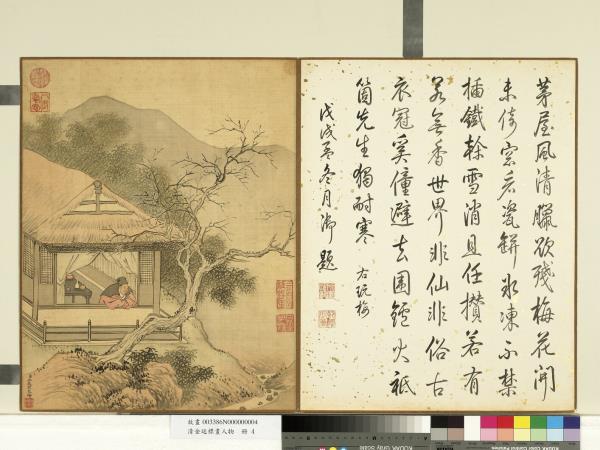 茅屋風清臘欲殘梅花開
未倚窓看瓷缾氷凍不禁
插鐵幹雪消且任攢若有
若無香世界非仙非俗古
衣冠奚僮避去圍鑪火祗
箇先生獨耐寒 右玩梅
戊戌孟冬月御題
故畫 003386N000000004
清金廷標畫人物 冊 4